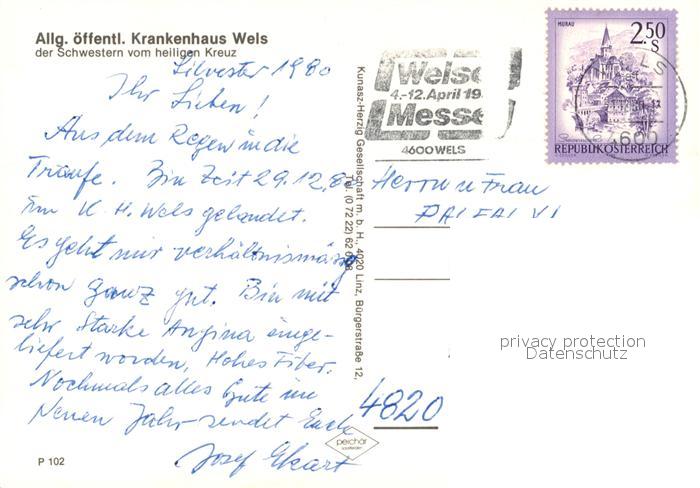 Allg. öffentl. Krankenhaus Wels
der Schwestern vom heiligen Kreuz
Silvester 1980
Ihr Lieben!
Aus dem Regen in die
Traufe. Bin seit 29.12.80
im K.H. Wels gelandet.
Es geht mir verhältnismäsig
schon ganz gut. Bin mit
sehr starke Angina einge-
liefert worden, Hohes Fiber.
Nochmals alles Gute im
Neuen Jahr sendet Euch
Josef Ekart
P 102
Kunasz-Herzig Gesellschaft m. b. H., 4020 Linz, Bürgerstraße 12,
Tel. (0 72 22) 62
perchár
Welser
4.-12. April 19
Messe
4600 WELS
MURAU
2.50
S
REPUBLIK ÖSTERREICH
4600
Herrn u Frau
4820
privacy protection
Datenschutz